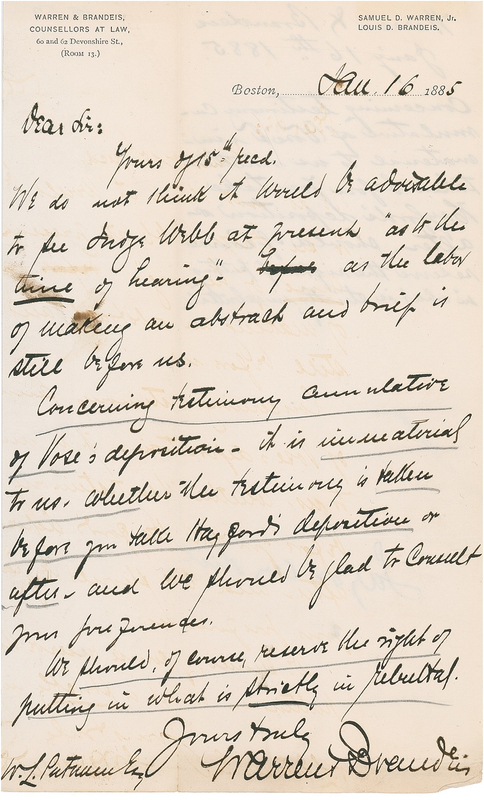 WARREN & BRANDEIS,
COUNSELLORS AT LAW,
60 and 62 Devonshire St.,
(ROOM 13.)
SAMUEL D. WARREN, Jr.
LOUIS D. BRANDEIS.
Boston, Jan. 16 1885
Dear Sir:
Yours of 15th recd.
We do not think it would be advisable
to see Judge Webb at present "as to the
time of hearing". as the labor
of making an abstract and brief is
still before us.
Concerning testimony cumulative
of Vose's deposition - it is immaterial
to us, whether the testimony is taken
before you take Hayford's deposition or
after - and we should be glad to consult
your preferences.
We should, of course, reserve the right of
putting in what is strictly in rebuttal.
Yours truly
W. L. Putnam Esq
Warren & Brandeis